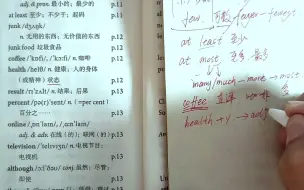 adj. & pron. 最小的；最少的 p.13
at least 至少；不少于；起码 p.13
junk
n. 无用的东西；无价值的东西 p.13
junk food 垃圾食品 p.13
coffee n. 咖啡 p.13
health n. 健康；人的身体
（或精神）状态 p.13
result n. 结果；后果 p.13
percent (= per cent)
百分之…… p.13
online
adj. & adv. 在线(的)；联网(的) p.13
television n. 电视节目；
电视机 p.13
although conj. 虽然；尽管；
即使 p.13
few, 可数 fewer - fewest
at least 至少
at most 至多 最多
many/much - more → most
coffee
health + y → adj